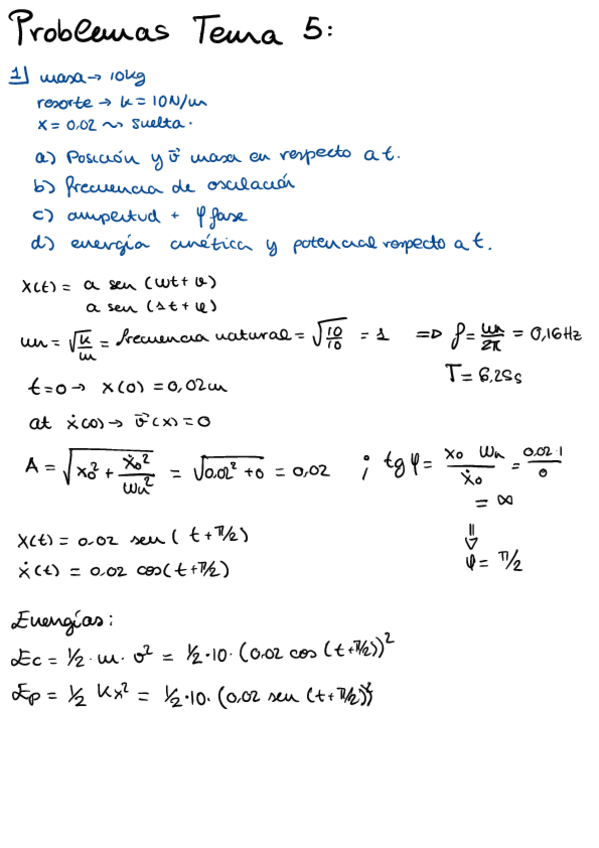 Problemas Tema 5:
1) masa → 10kg
resorte → k = 10N/m
x = 0,02 ⇝ suelta.
a) Posición y v⃗ masa en respecto a t.
b) frecuencia de oscilación
c) amplitud + φ fase
d) energía cinética y potencial respecto a t.
x(t) = a sen (wt + φ)
a sen (1t + φ)
wn = √(k/m) = frecuencia natural = √(10/10) = 1 ⇒ f = wn/2π = 0,16Hz
T = 6,25s
t=0 → x(0) = 0,02m
at ẋ(0) → v⃗(x) = 0
A = √(x0² + ẋ0²/wn²) = √(0.02² + 0) = 0,02 ; tg φ = x0 wn/ẋ0 = 0.02·1/0
= ∞
⇓
φ = π/2
x(t) = 0.02 sen ( t + π/2)
ẋ(t) = 0,02 cos(t + π/2)
Energías:
Ec = 1/2 · m · v² = 1/2 · 10 · (0,02 cos (t + π/2))²
Ep = 1/2 kx² = 1/2 · 10 · (0,02 sen (t + π/2))²